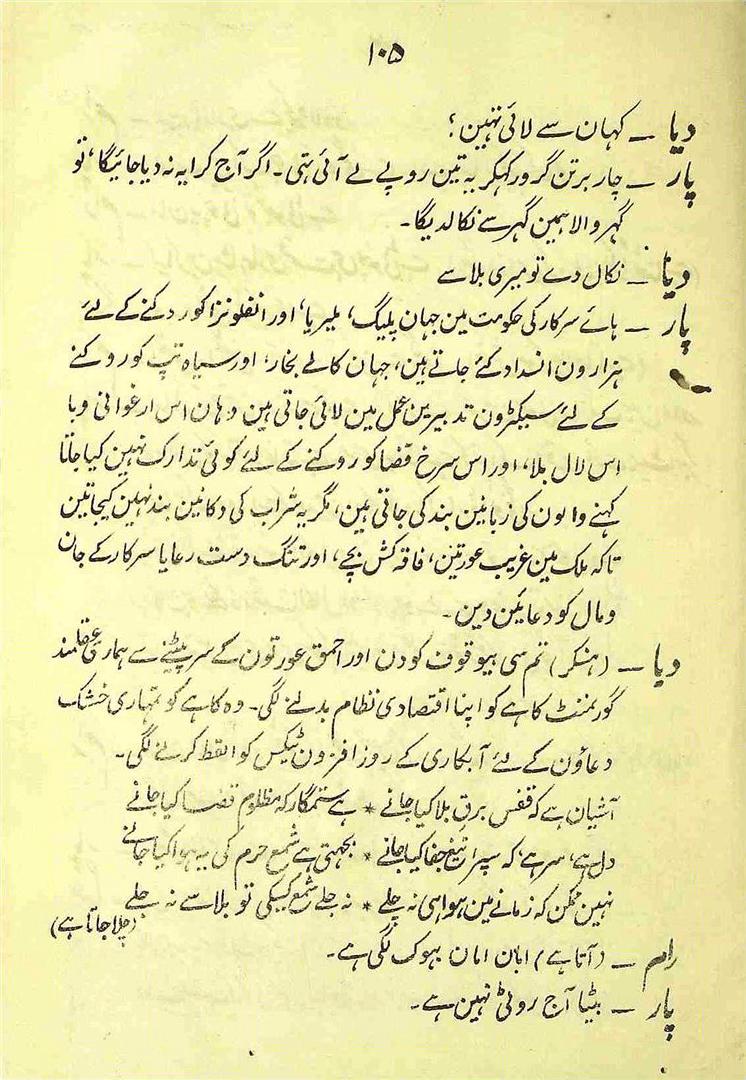 ۱۰۵
دیا ـ کہان سے لائی تہین؟
پار ـ چار برتن گرور کہکر یہ تین روپے لے آئی تہی۔ اگر آج کرایہ نہ دیا جائیگا، تو
گہر والا ہمین گہر سے نکالدیگا۔
دیا ـ نکال دے تو میری بلا سے
پار ـ ہائے سرکار کی حکومت مین جہان پلیگ، ملیریا، اور انفلونزا کو روکنے کے لئے
ہزارون انسداد کئے جاتے ہین، جہان کالے بخار، اور سیاہ تپ کو روکنے
کے لئے سیکڑون تدبیرین عمل مین لائی جاتی ہین وہان اس ارغوانی وبا
اس لال بلا، اور اس سرخ قضا کو روکنے کے لئے کوئی تدارک نہین کیا جاتا
کہنے والون کی زبانین بند کی جاتی ہین، مگر یہ شراب کی دکانین بند نہین کیجاتین
تاکہ ملک مین غریب عورتین، فاقہ کش بچے، اور تنگ دست رعایا سرکار کے جان
ومال کو دعائین دین۔
دیا ـ (ہنسکر) تم سی بیوقوف کودن اور احمق عورتون کے سر پیٹنے سے ہماری عقلمند
گورمنٹ کاہے کو اپنا اقتصادی نظام بدلنے لگی۔ وہ کاہے کو تمہاری خشک
دعاؤن کے لئے آبکاری کے روز افزون ٹیکس کو القط کرنے لگی۔
آشیان ہے کہ قفس برقِ بلا کیا جانے * ہے ستمگار کہ مظلوم قضا کیا جانے
دل ہے، سر ہے، کہ سپر تیغِ جفا کیا جانے * بجہتی ہے شمع حرم کی یہ ہوا کیا جانے
نہین ممکن کہ زمانے مین ہوا ہی نہ چلے * نہ جلے شمع کسیکی تو بلا سے نہ جلے
(چلا جاتا ہے)
رام ـ (آتا ہے) امان امان بہوک لگی ہے۔
پار ـ بیٹا آج روٹی نہین ہے۔